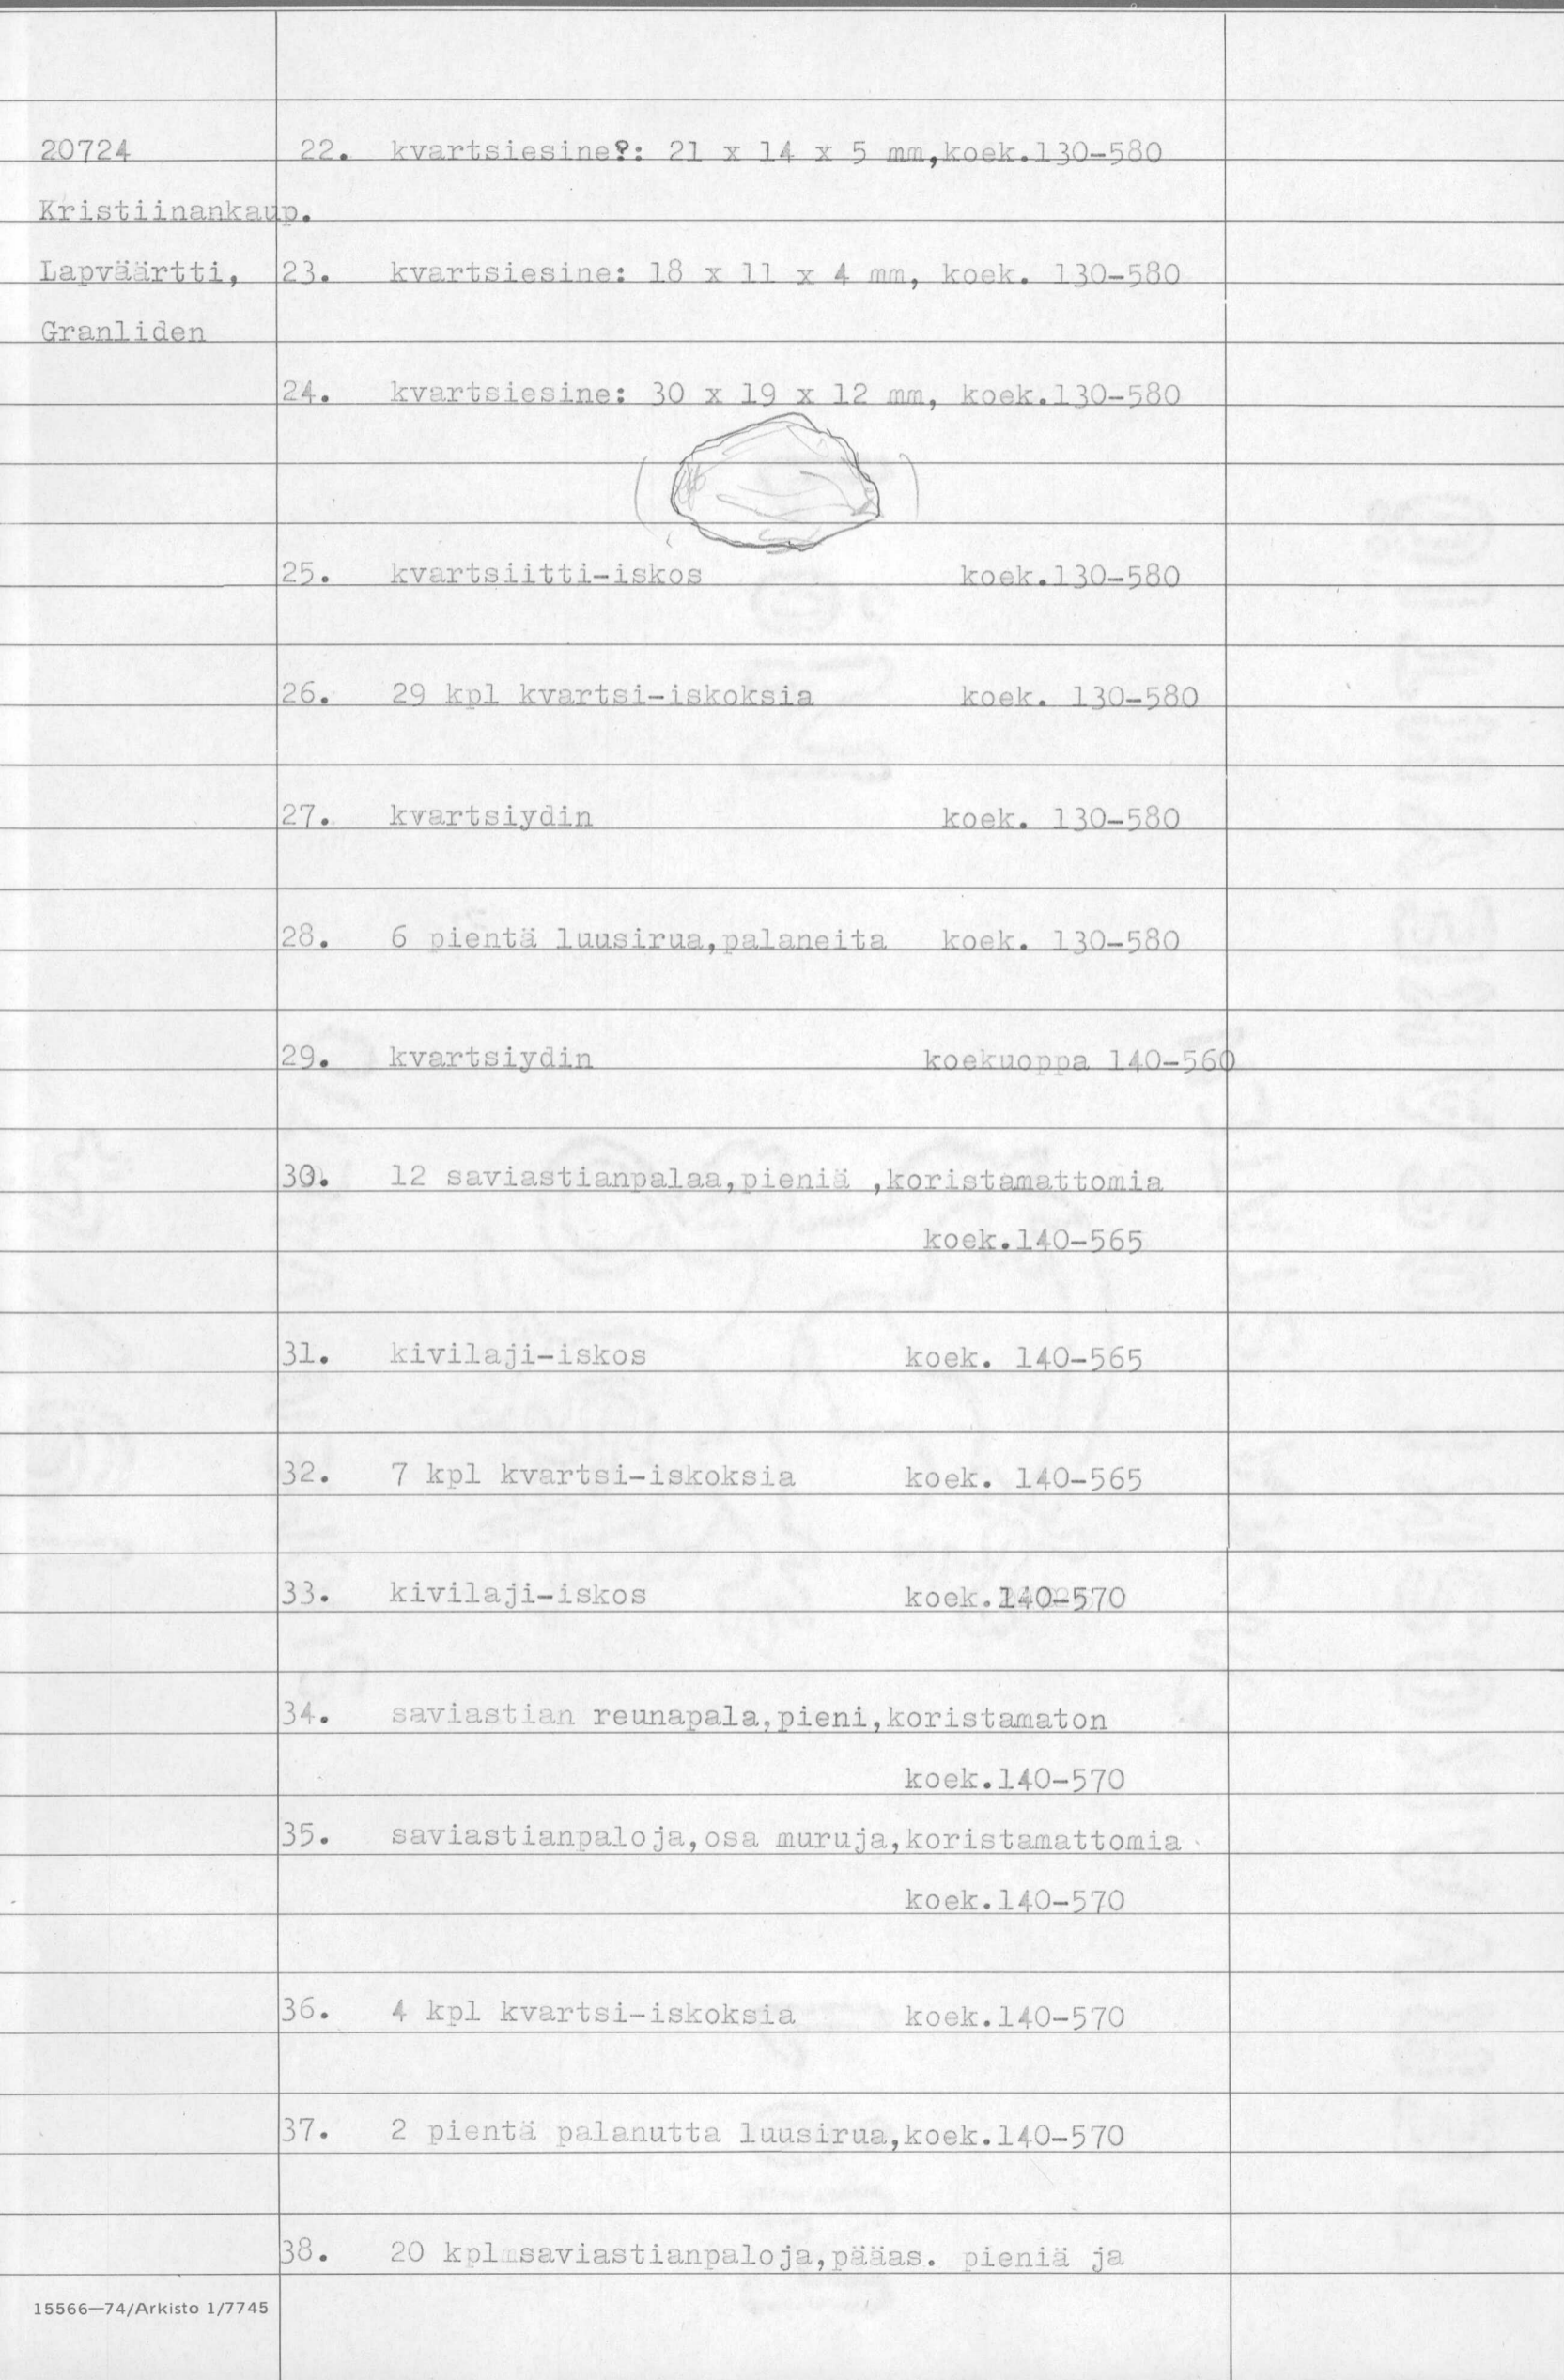 20724 22. kvartsiesine?: 21 x 14 x 5 mm,koek.130-580
Kristiinankaup.
Lapväärtti, 23. kvartsiesine: 18 x 11 x 4 mm, koek. 130-580
Granliden
24. kvartsiesine: 30 x 19 x 12 mm, koek.130-580
25. kvartsiitti-iskos koek.130-580
26. 29 kpl kvartsi-iskoksia koek. 130-580
27. kvartsiydin koek. 130-580
28. 6 pientä luusirua,palaneita koek. 130-580
29. kvartsiydin koekuoppa 140-560
30. 12 saviastianpalaa,pieniä ,koristamattomia
koek.140-565
31. kivilaji-iskos koek. 140-565
32. 7 kpl kvartsi-iskoksia koek. 140-565
33. kivilaji-iskos koek.140-570
34. saviastian reunapala,pieni,koristamaton
koek.140-570
35. saviastianpaloja,osa muruja,koristamattomia
koek.140-570
36. 4 kpl kvartsi-iskoksia koek.140-570
37. 2 pientä palanutta luusirua,koek.140-570
38. 20 kpl saviastianpaloja,pääas. pieniä ja
15566—74/Arkisto 1/7745